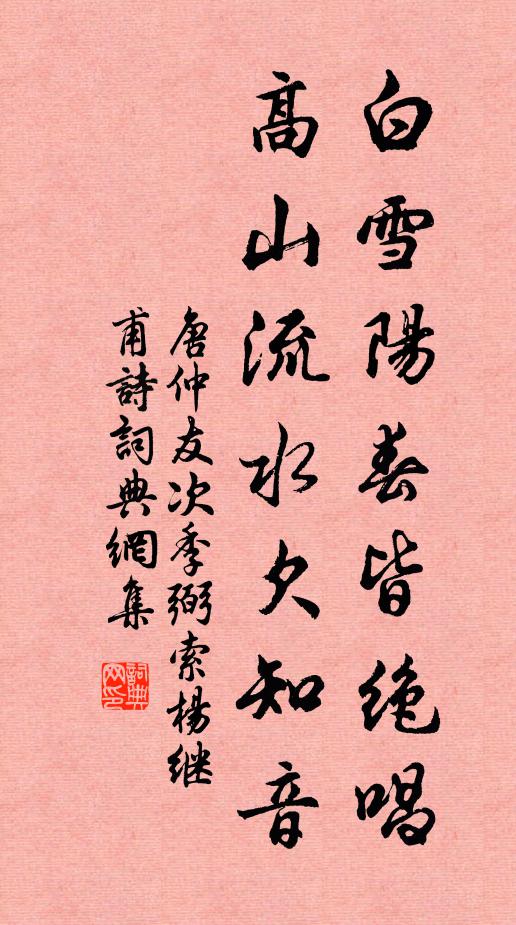 白雪陽春皆絶唱
高山流水久知音
唐仲友次季弼索楊继
甫詩詞典網集
詞典
网印